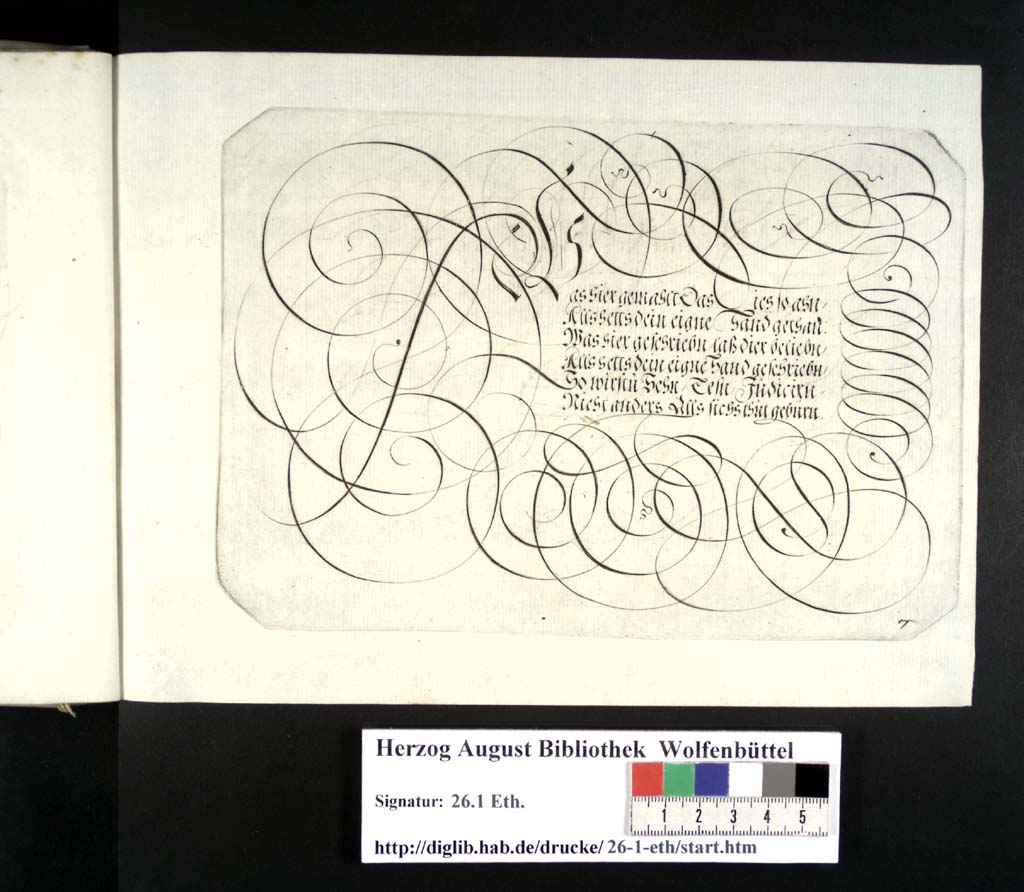 Was hier gemahlt Das Lies so ahn,
Allß hetts dein eigne Hand gethan:
Was hier geschriebn laß dier beliebn,
Allß hetts dein eigne Hand geschriebn,
So wirstu Hehn Judicirn
Nicht anders Allß sichs thut geburn.
T
Herzog August Bibliothek Wolfenbüttel
Signatur: 26.1 Eth.
1 2 3 4 5
http://diglib.hab.de/drucke/ 26-1-eth/start.htm